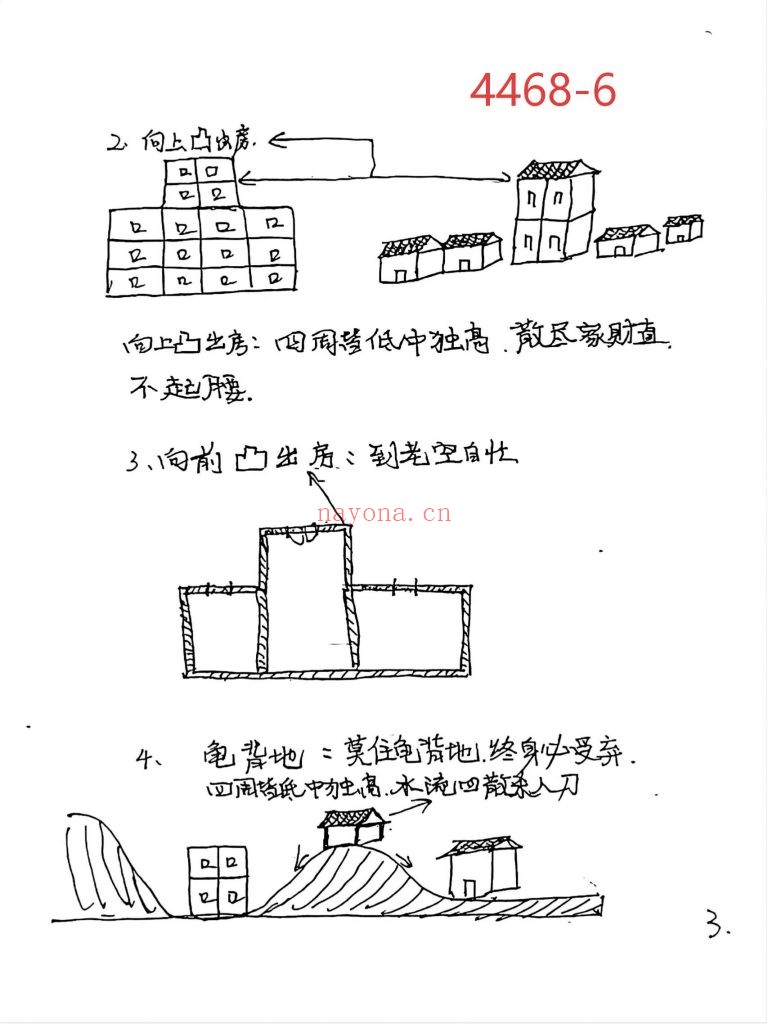 4468-6
2、向上凸出房.
向上凸出房：四周皆低中独高.散尽家财直
不起腰.
3、向前凸出房：到老空自忙
nayona.cn
4、龟背地：莫住龟背地.终身必受弃.
四周皆低中独高.水流四散杀人刀
3.